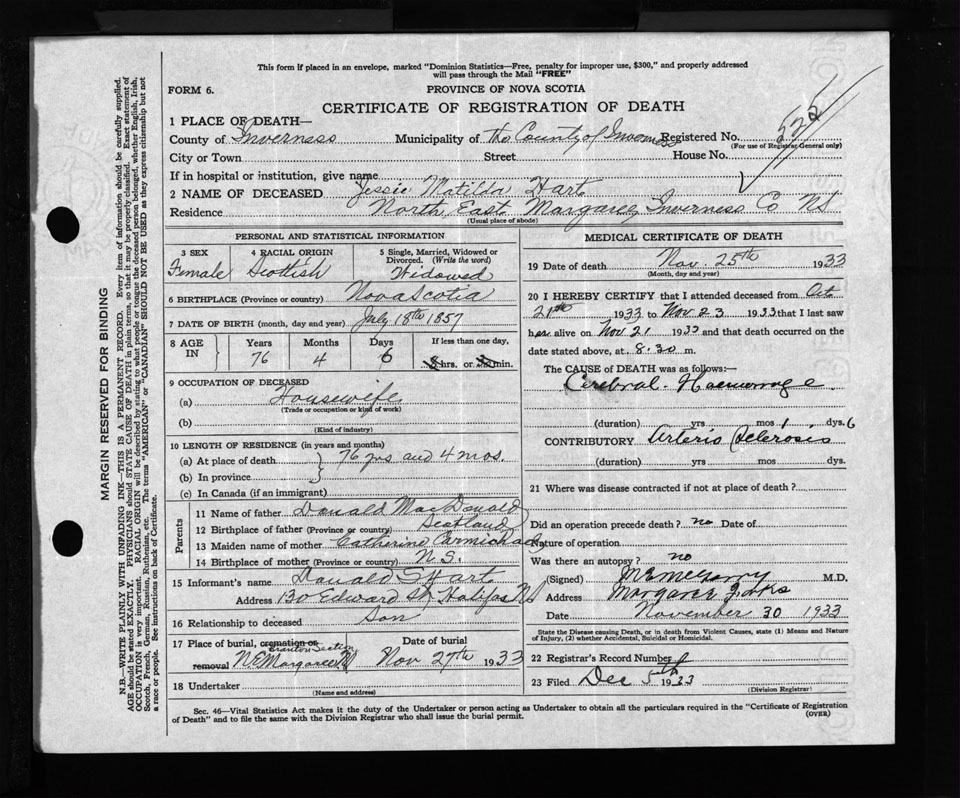 This form if placed in an envelope, marked "Dominion Statistics—Free, penalty for improper use, $300," and properly addressed
will pass through the Mail "FREE"
FORM 6.
PROVINCE OF NOVA SCOTIA
CERTIFICATE OF REGISTRATION OF DEATH
1 PLACE OF DEATH—
County of Inverness Municipality of the County of Inverness Registered No. 522
(For use of Registrar General only)
City or Town Street House No.
If in hospital or institution, give name
2 NAME OF DECEASED Jessie Matilda Hart
Residence North East Margaree, Inverness Co NS
(Usual place of abode)
PERSONAL AND STATISTICAL INFORMATION
3 SEX 4 RACIAL ORIGIN 5 Single, Married, Widowed or
Divorced. (Write the word)
Female Scottish Widowed
6 BIRTHPLACE (Province or country) Nova Scotia
7 DATE OF BIRTH (month, day and year) July 18th 1857
8 AGE IN Years Months Days If less than one day,
76 4 6 hrs. or min.
9 OCCUPATION OF DECEASED
(a) Housewife
(Trade or occupation or kind of work)
(b)
(Kind of industry)
10 LENGTH OF RESIDENCE (in years and months)
(a) At place of death 76 yrs and 4 mos.
(b) In province
(c) In Canada (if an immigrant)
Parents
11 Name of father Donald MacDonald
12 Birthplace of father (Province or country) Scotland
13 Maiden name of mother Catherine Carmichael
14 Birthplace of mother (Province or country) N.S.
15 Informant's name Donald S Hart
Address 130 Edward St, Halifax NS
16 Relationship to deceased Son
17 Place of burial, cremation or removal Date of burial
N E Margaree NS Nov 27th 1933
18 Undertaker
(Name and address)
MEDICAL CERTIFICATE OF DEATH
19 Date of death Nov. 25th 1933
(Month, day and year)
20 I HEREBY CERTIFY that I attended deceased from Oct
21st 1933 to Nov 23 1933 that I last saw
her alive on Nov 21 1933 and that death occurred on the
date stated above, at 8.30 m.
The CAUSE OF DEATH was as follows:—
Cerebral Haemorrage
(duration) yrs mos 1 dys. 6
CONTRIBUTORY Arterio Sclerosis
(duration) yrs mos dys.
21 Where was disease contracted if not at place of death?
Did an operation precede death? no Date of
Nature of operation
Was there an autopsy? no
(Signed) M.D.
Address Margaree Forks
Date November 30 1933
State the Disease causing Death, or in death from Violent Causes, state (1) Means and Nature
of Injury, (2) whether Accidental, Suicidal or Homicidal.
22 Registrar's Record Number
23 Filed Dec 5th 1933
(Division Registrar)
Sec. 46—Vital Statistics Act makes it the duty of the Undertaker or person acting as Undertaker to obtain all the particulars required in the "Certificate of Registration
of Death" and to file the same with the Division Registrar who shall issue the burial permit.
(OVER)
MARGIN RESERVED FOR BINDING
N.B.—WRITE PLAINLY WITH UNFADING INK—THIS IS A PERMANENT RECORD. Every item of information should be carefully supplied.
AGE should be stated EXACTLY. PHYSICIANS should STATE CAUSE OF DEATH in plain terms, so that it may be properly classified. Exact statement of
OCCUPATION is very important. RACIAL ORIGIN will be described by stating to what people or tongue the deceased person belonged, whether English, Irish,
Scotch, French, German, Russian, Ruthenian, etc. The terms "AMERICAN" or "CANADIAN" SHOULD NOT BE USED as they express citizenship but not
a race or people. See instructions on back of Certificate.